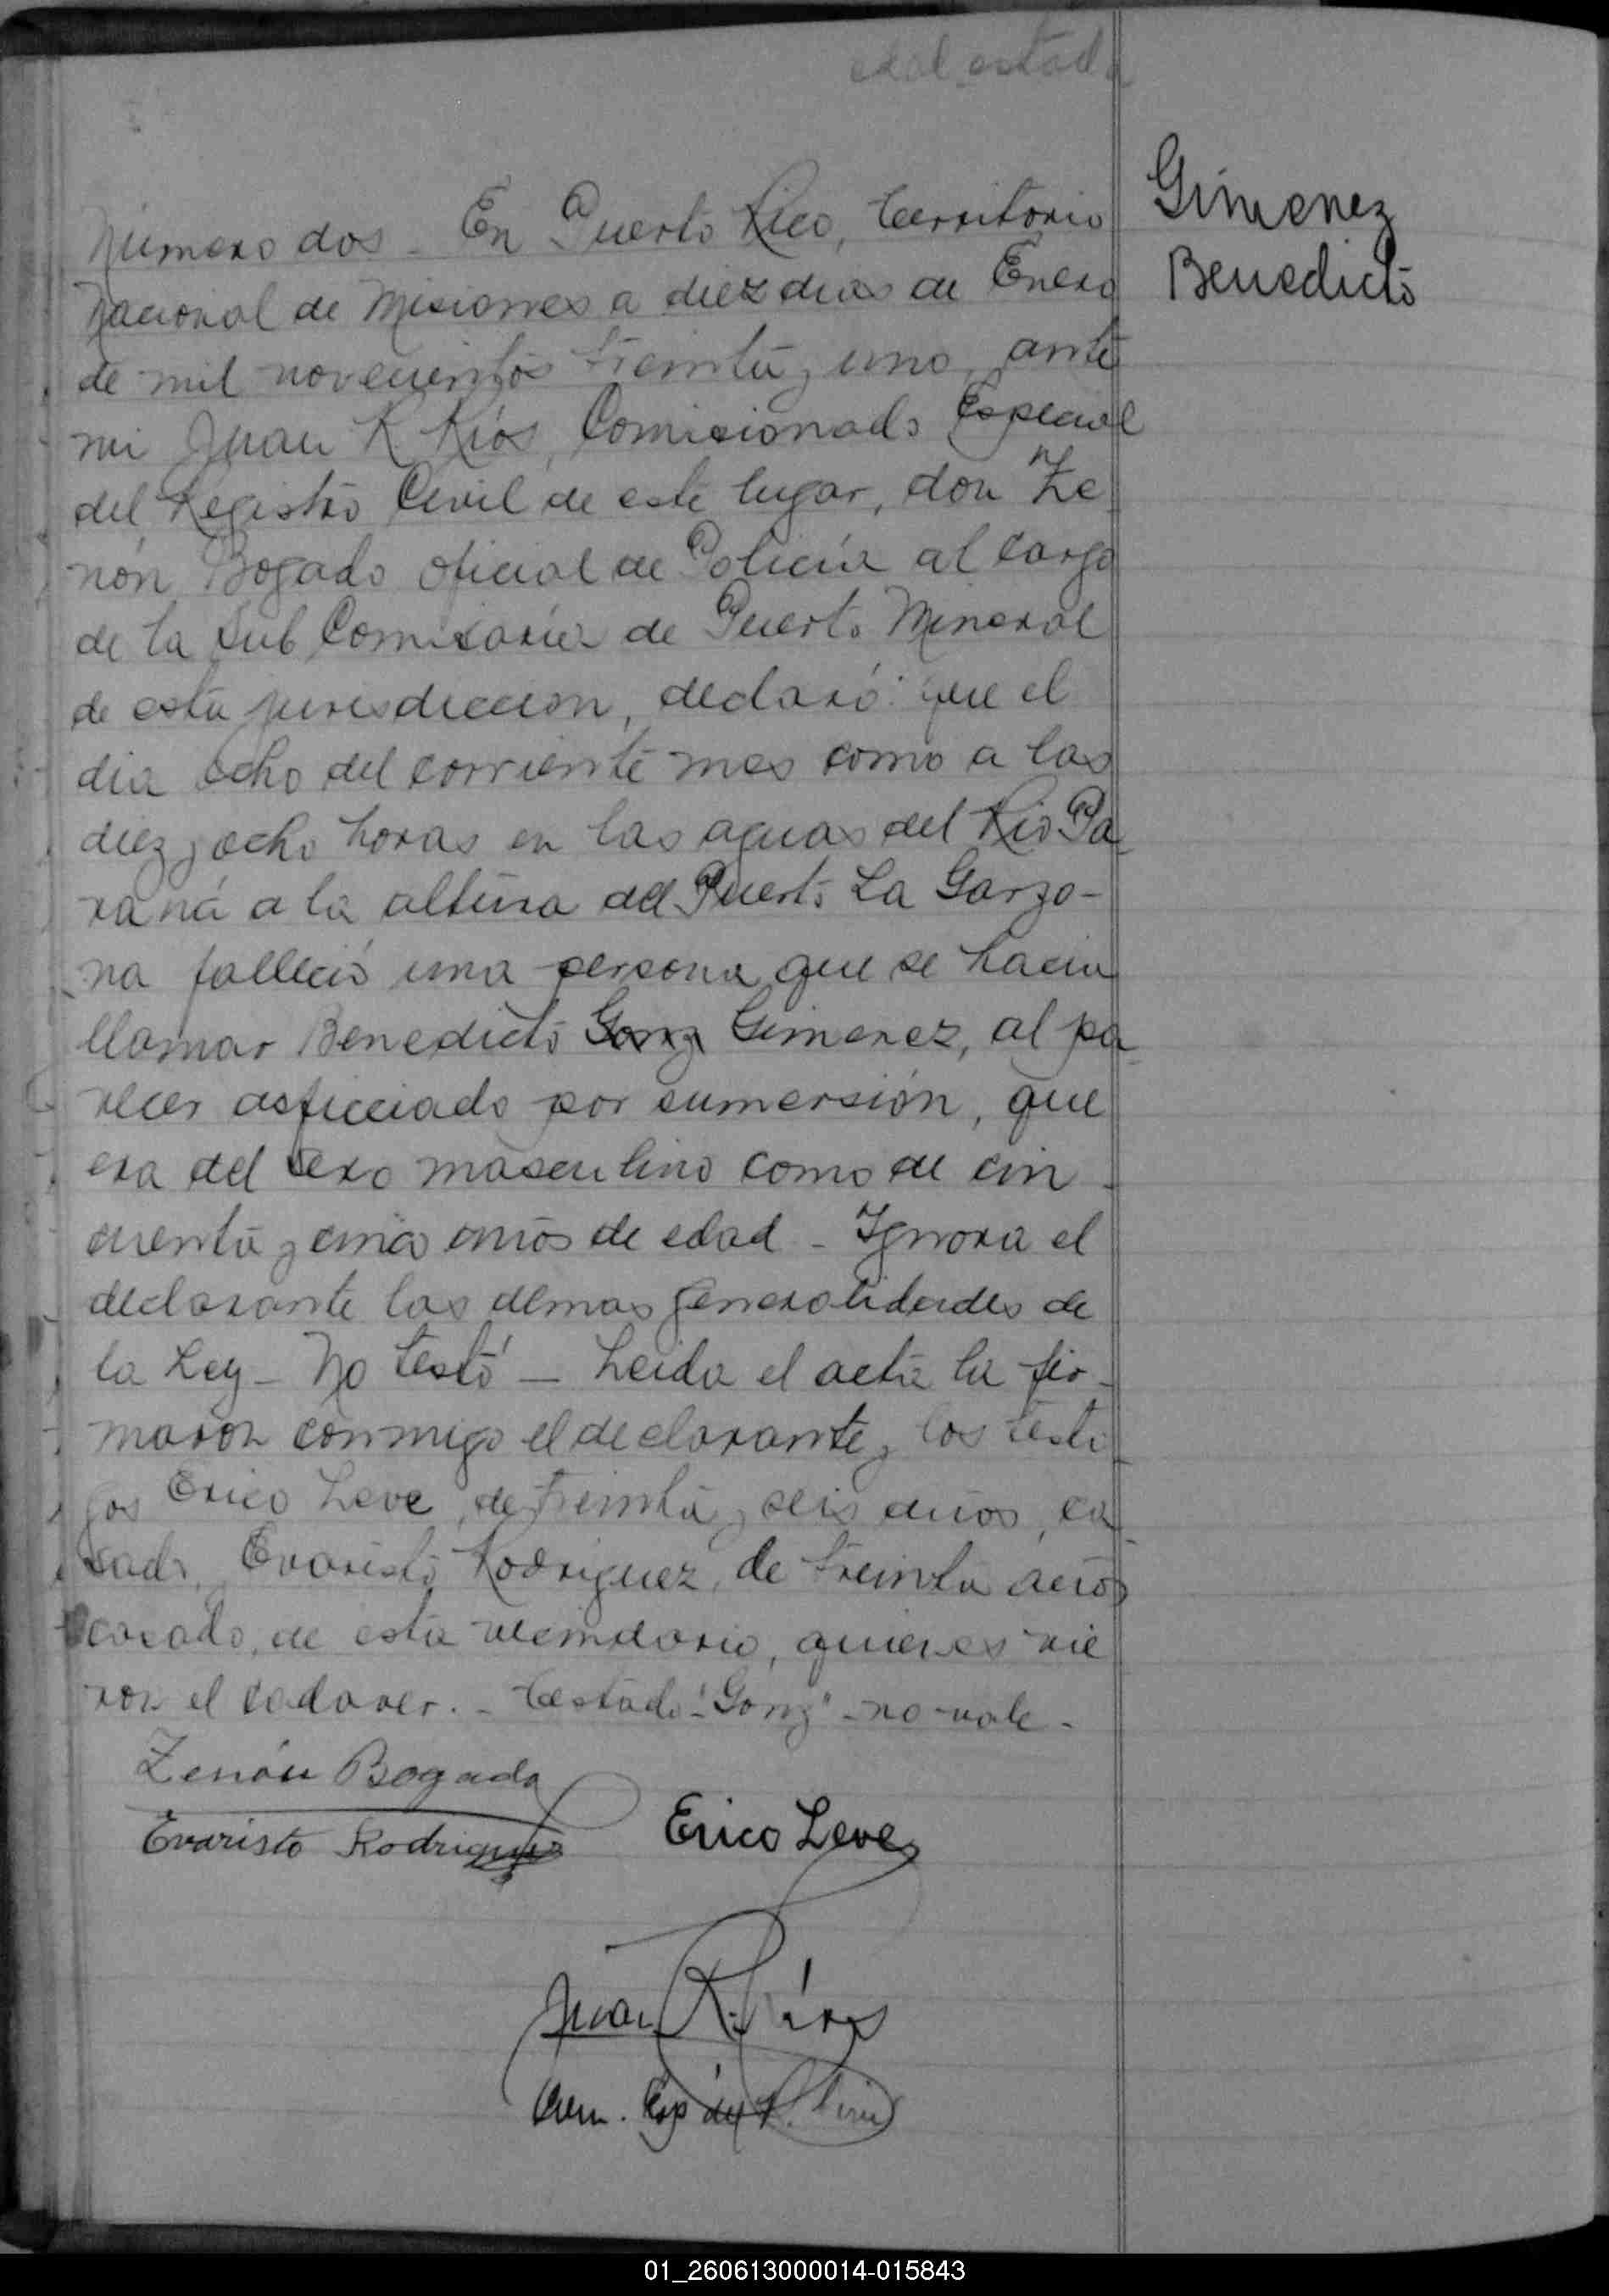 Gimenez
Benedicto
Número dos - En Puerto Rico, territorio
Nacional de Misiones a diez dias de Enero
de mil novecientos treinta y uno, ante
mi Juan R. Rios, Comisionado Especial
del Registro Civil de este lugar, don Ze
nón Bogado oficial de Policía al cargo
de la Sub Comisaria de Puerto Mineral
de esta jurisdiccion, declaró: que el
dia ocho del corriente mes como a las
diez y ocho horas en las aguas del Rio Pa
raná a la altura del Puerto La Garzo-
na falleció una persona que se hacia
llamar Benedicto Gonz Gimenez, al pa
recer asficciado por sumersión, que
era del sexo masculino como de cin
cuenta y cinco años de edad - Ignora el
declarante las demas generalidades de
la Ley - No testó - Leida el acta la fir-
maron conmigo el declarante y los testi
gos Erico Leve, de treinta y seis años, ca
sado, Evaristo Rodriguez, de treinta años
casado, de esta vecindario, quienes vie
ron el cadaver. - Testado - "Gonz" - no vale -
Zenón Bogado
Evaristo Rodriguez Erico Leve
Juan R. Rios
Com. Esp del R. Civil
01_260613000014-015843